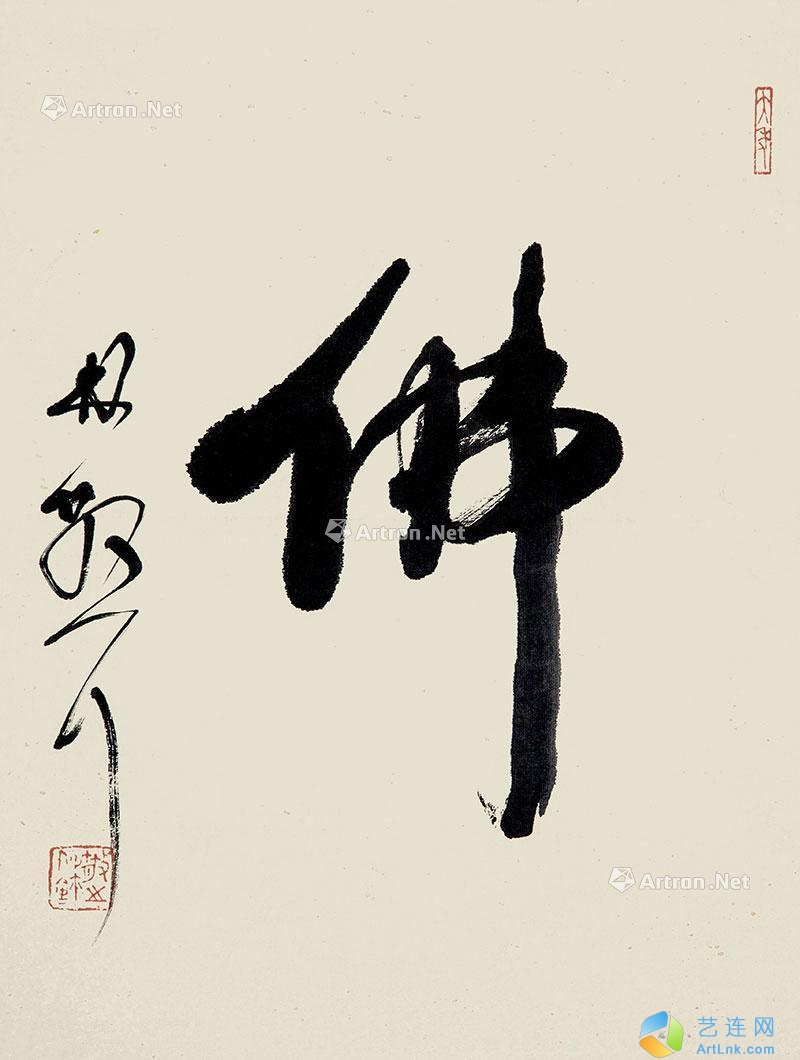 佛
林散耳
Artron.Net
Artron.Net
Artron.Net
艺连网
ArtLnk.com